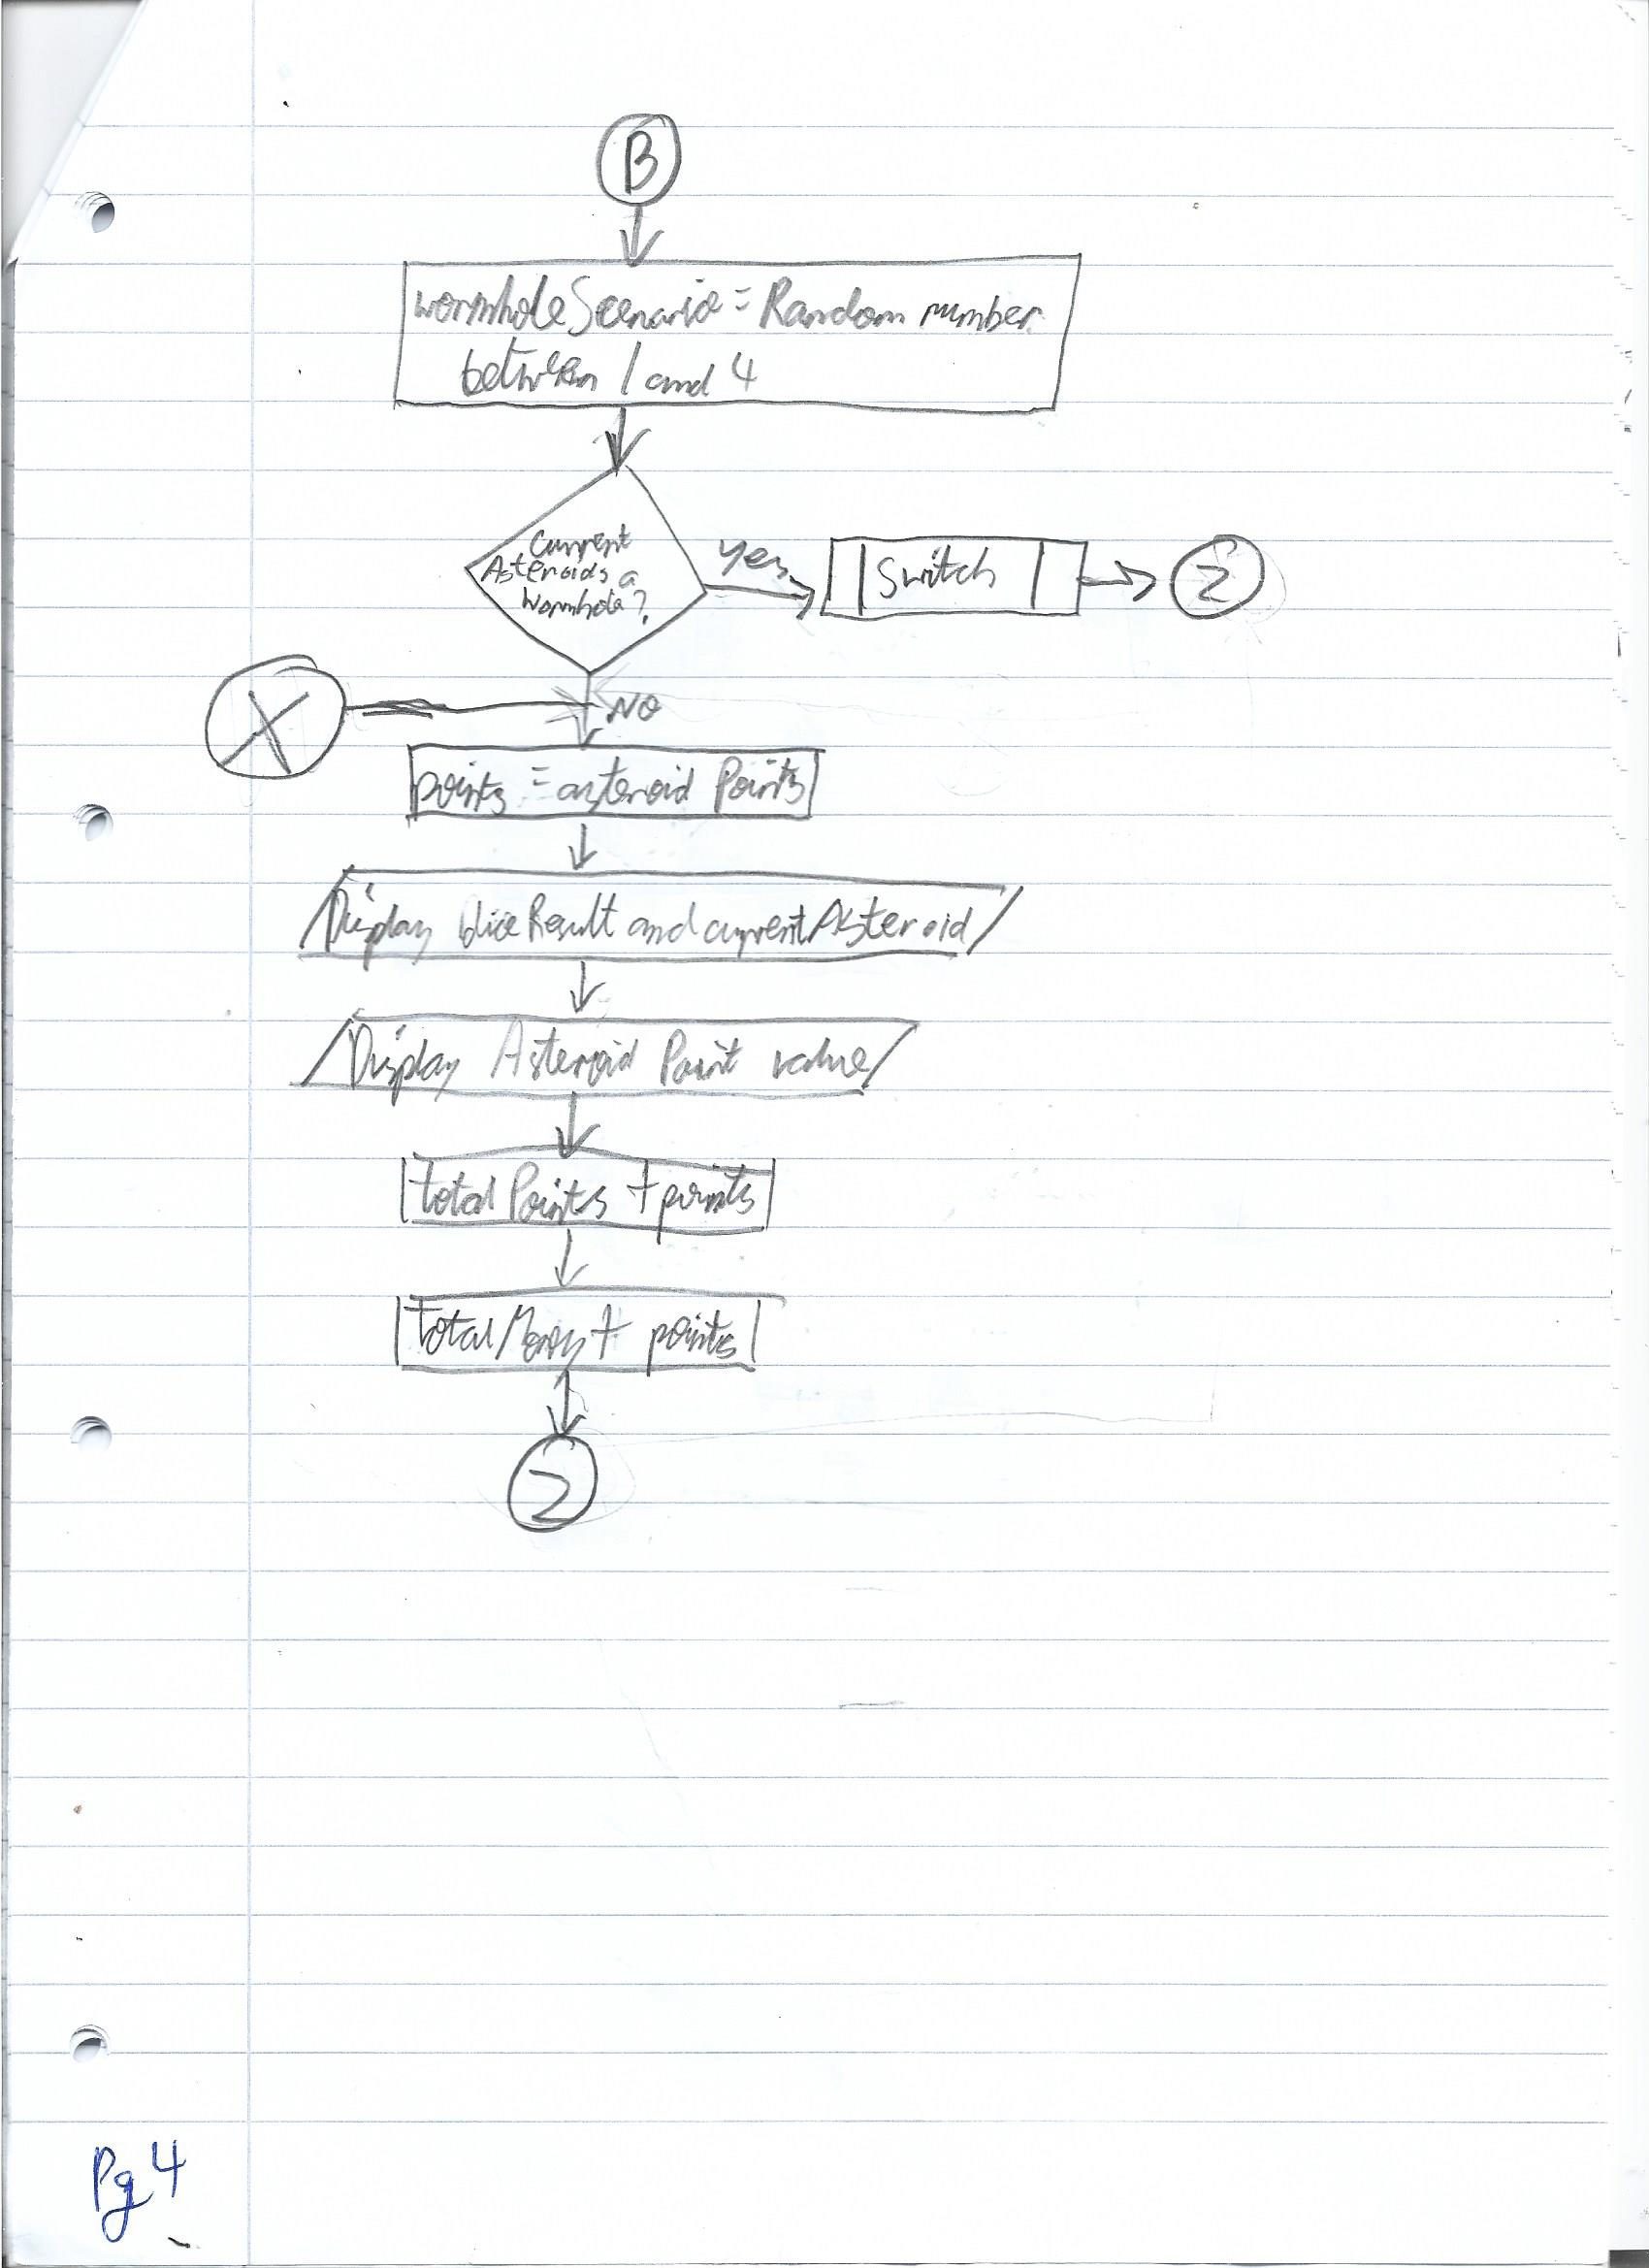 B
wormholeScenario = Random number
between 1 and 4
Current
Asteroids a
Wormhole?
Yes
Switch
2
X
NO
points = asteroid Points
Display diceResult and currentAsteroid
Display Asteroid Point value
totalPoints + points
totalMoney + points
2
Pg 4